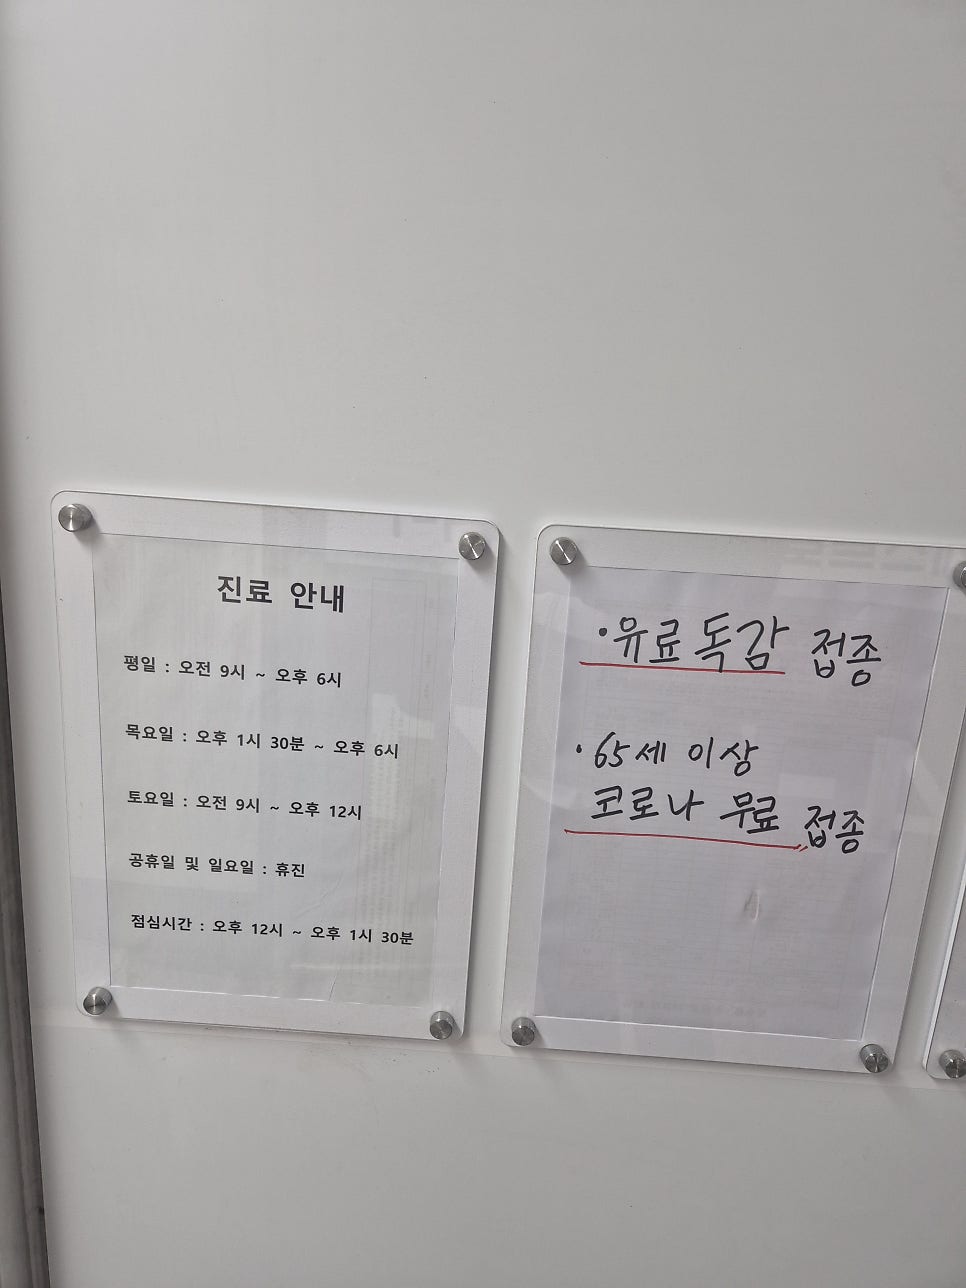 진료 안내
평일 : 오전 9시 ~ 오후 6시
목요일 : 오후 1시 30분 ~ 오후 6시
토요일 : 오전 9시 ~ 오후 12시
공휴일 및 일요일 : 휴진
점심시간 : 오후 12시 ~ 오후 1시 30분
·유료독감 접종
·65세 이상
코로나 무료 접종